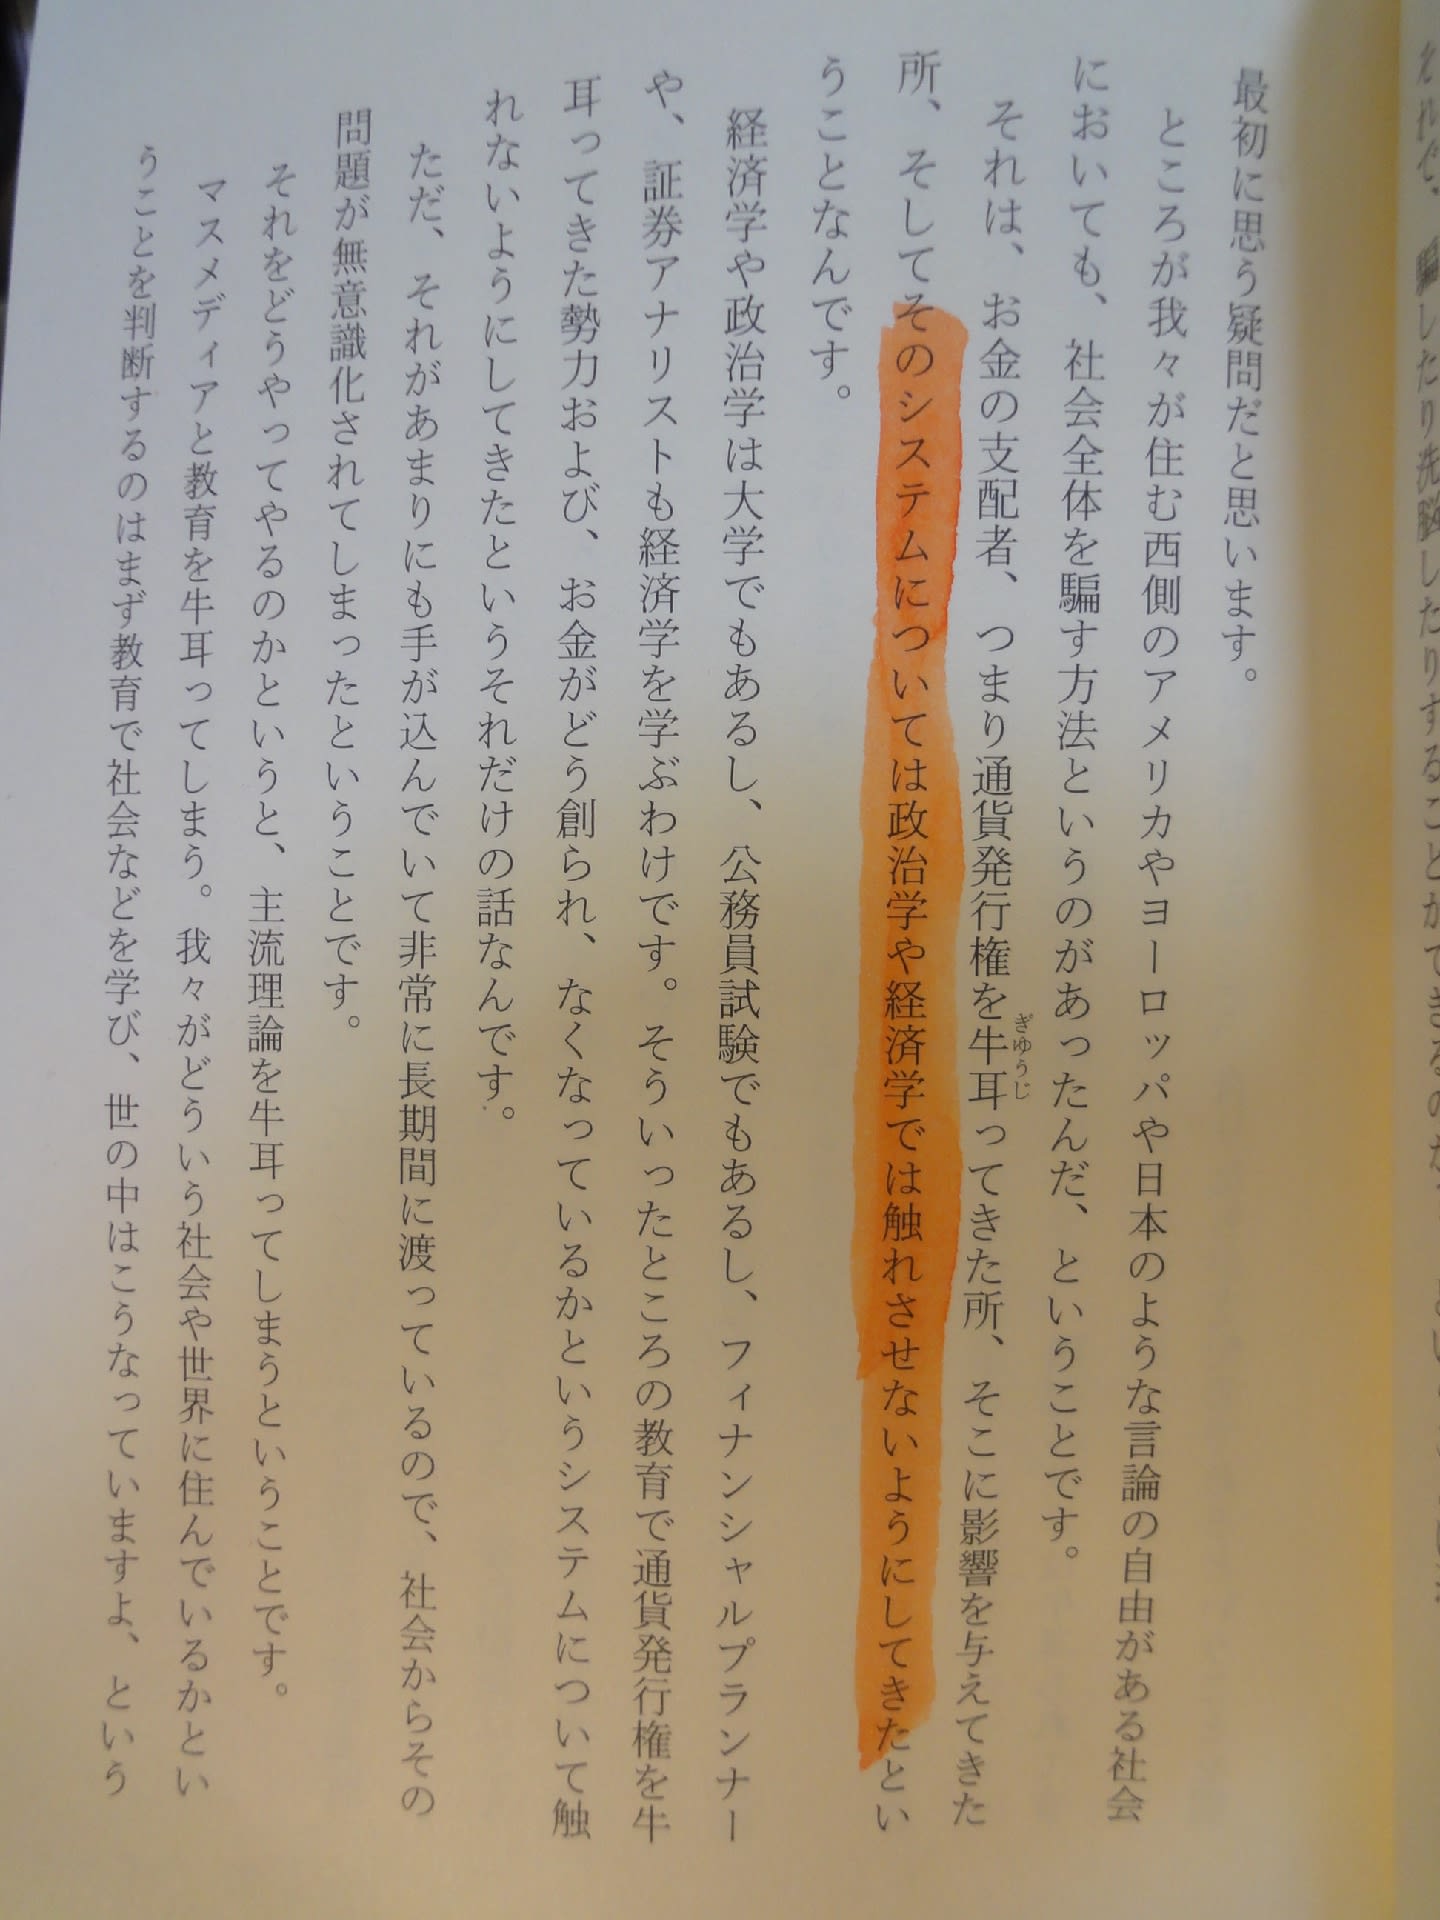 騙したり洗脳したりすることができるのか
最初に思う疑問だと思います。
ところが我々が住む西側のアメリカやヨーロッパや日本のような言論の自由がある社会
においても、社会全体を騙す方法というのがあったんだ、ということです。
それは、お金の支配者、つまり通貨発行権を牛耳ってきた所、そこに影響を与えてきた
ぎゅうじ
所、そしてそのシステムについては政治学や経済学では触れさせないようにしてきたとい
うことなんです。
経済学や政治学は大学でもあるし、公務員試験でもあるし、フィナンシャルプランナー
や、証券アナリストも経済学を学ぶわけです。そういったところの教育で通貨発行権を牛
耳ってきた勢力および、お金がどう創られ、なくなっているかというシステムについて触
れないようにしてきたというそれだけの話なんです。
ただ、それがあまりにも手が込んでいて非常に長期間に渡っているので、社会からその
問題が無意識化されてしまったということです。
それをどうやってやるのかというと、主流理論を牛耳ってしまうということです。
マスメディアと教育を牛耳ってしまう。我々がどういう社会や世界に住んでいるかとい
うことを判断するのはまず教育で社会などを学び、世の中はこうなっていますよ、という